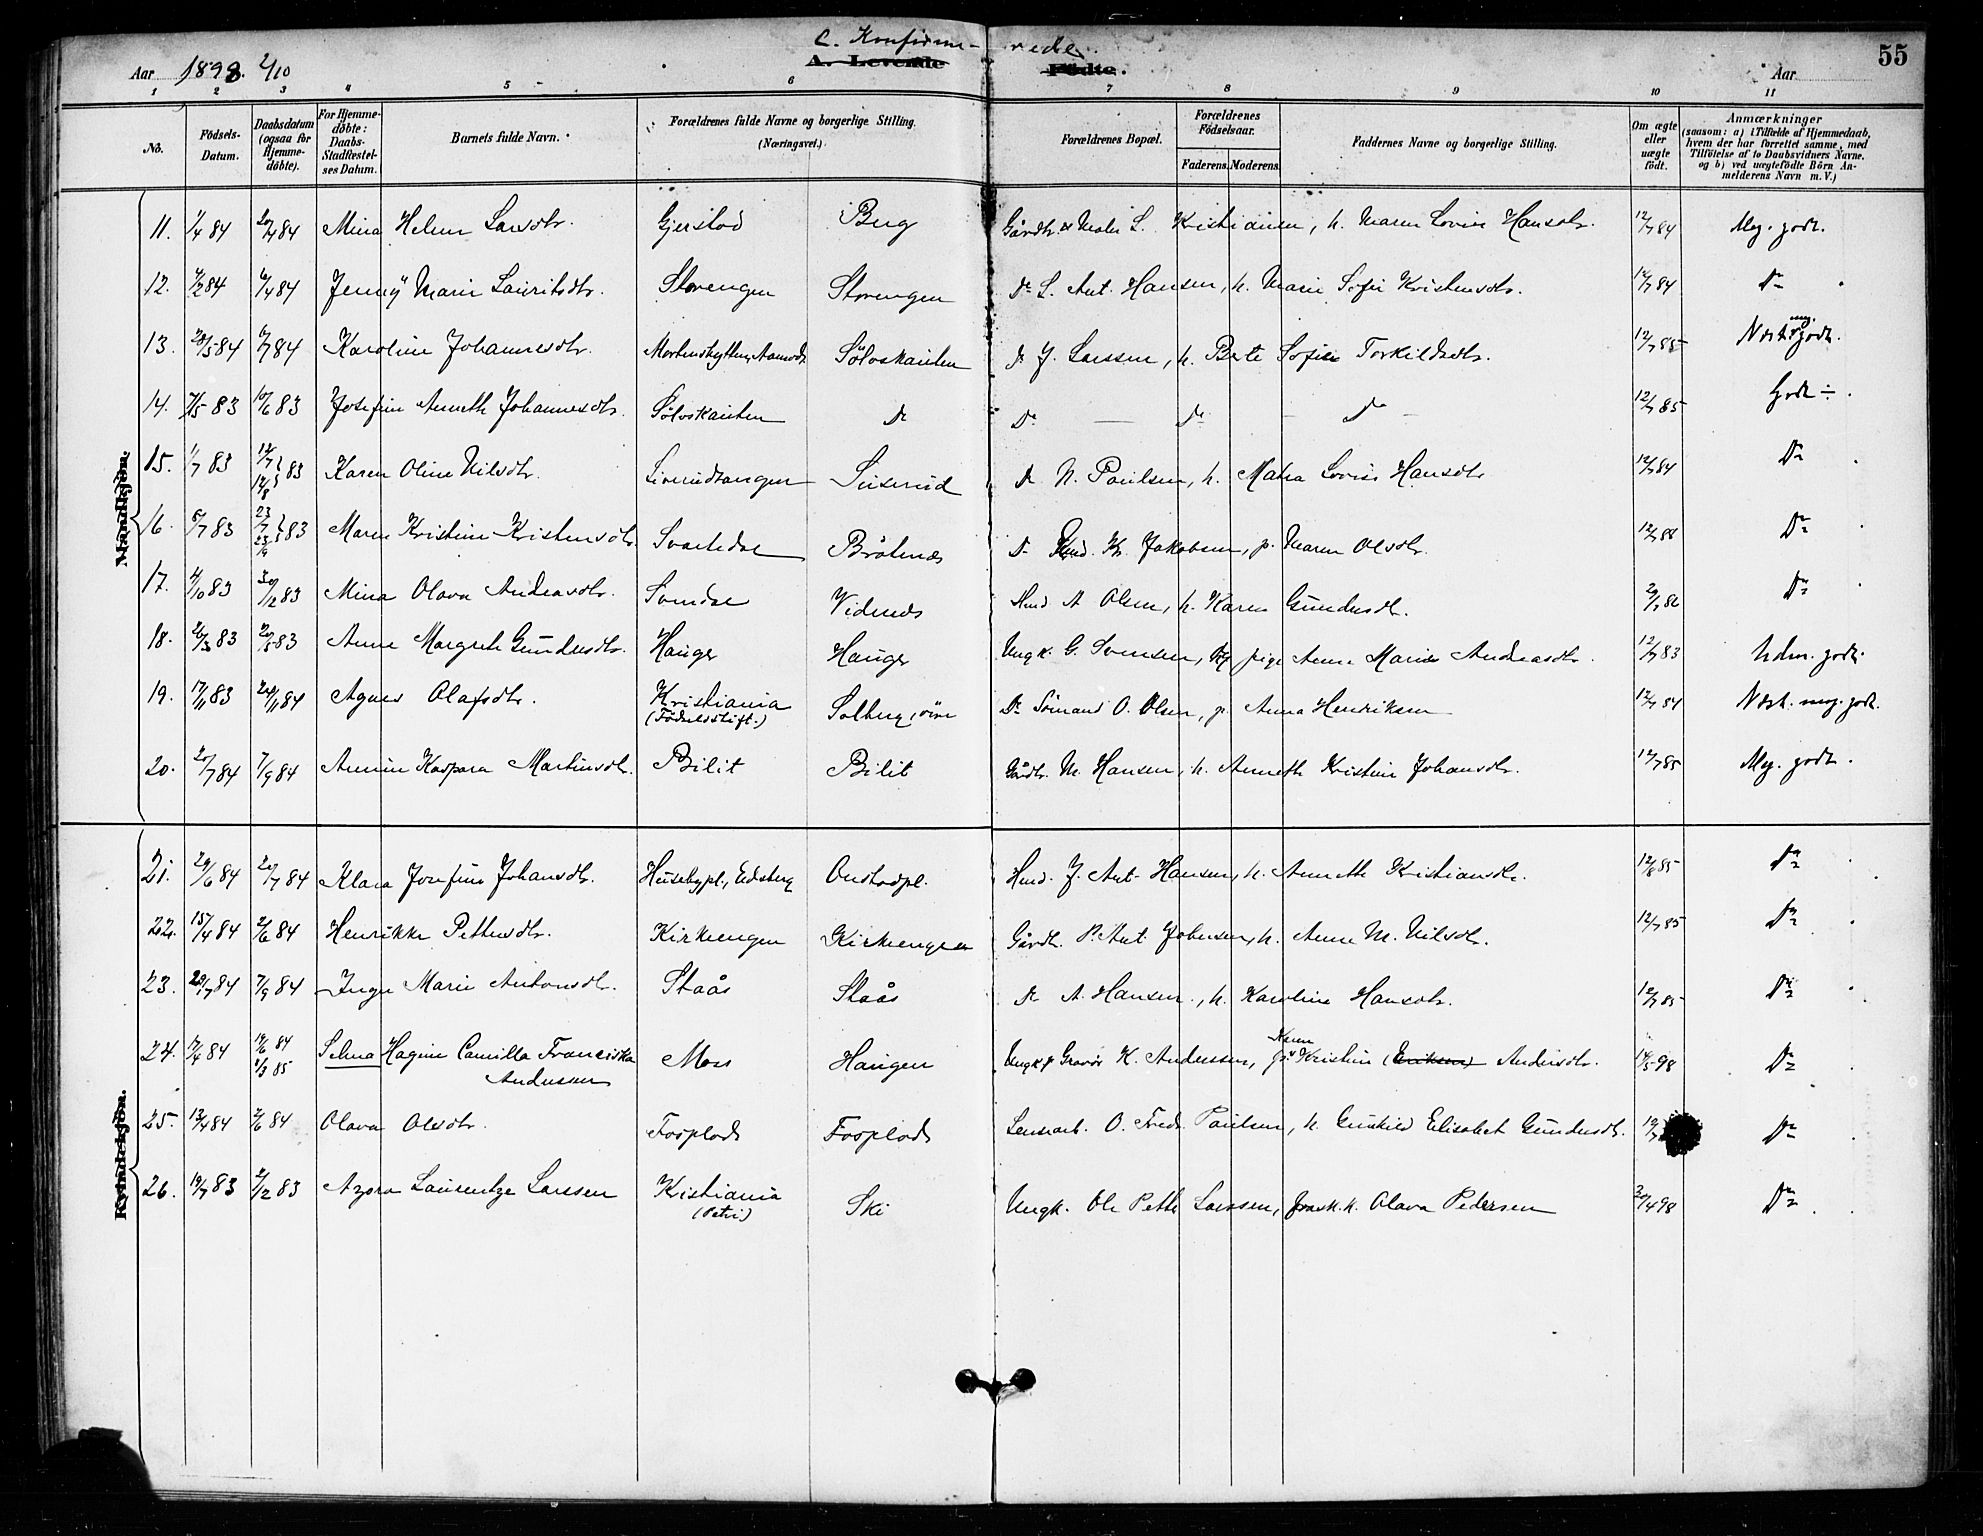 C. Konfirme- rede.
A. Levende Födte.
55
Aar 1898. 2/10
Aar
1 2 3 4 5 6 7 8 9 10 11
No.
Födsels-Datum.
Daabsdatum (ogsaa för Hjemme-döbte).
For Hjemme-döbte: Daabs-Stadfæstel-ses Datum.
Barnets fulde Navn.
Forældrenes fulde Navne og borgerlige Stilling. (Næringsvei.)
Forældrenes Bopæl.
Forældrenes Födselsaar.
Faderens. Moderens.
Faddernes Navne og borgerlige Stilling.
Om ægte eller uægte födt.
Anmærkninger (saasom: a) i Tilfælde af Hjemmedaab, hvem der har forrettet samme, med Tilföielse af to Daabsvidners Navne, og b) ved uægtefödte Börn An-melderens Navn m. V.)
Mandkjön.
11. 1/4 84 20/4 84 Mina Helene Larsdtr. Gjerstad Berg Gårdbr. L. Kristiansen, h. Maren Lovise Hansdtr. 12/7 84 Meg. godt.
12. 4/2 84 6/4 84 Jenny Marie Lauritsdtr. Storengen Storengen Do L. Ant. Hansen, h. Marie Sofie Kristensdtr. 12/7 84 Do
13. 20/5 84 6/7 84 Karoline Johannesdtr. Sölvskauten Do J. Larssen, h. Berte Sofie Torkildsdtr. 12/7 85 Næst. meg. godt.
14. 7/5 83 10/6 83 Josefine Annette Johannesdtr. Sölvskauten Do Do — Do — Do — 12/7 85 Godt ÷.
15. 1/7 83 12/7 12/8 83 Karen Oline Nilsdtr. Siverudtangen Siverud Do N. Paulsen, h. Matea Lovise Hansdtr. 12/7 84 Do
16. 8/7 83 23/7 23/9 83 Maren Kristine Kristensdtr. Svartedal Bråtenes Do Kr. Jakobsen, p. Maren Olsdtr. 12/7 88 Do
17. 4/10 83 30/12 83 Mina Olava Andreasdtr. Videnes A Olsen, h. Karen Gundersdtr. Do
18. 20/3 83 20/5 83 Anne Margrete Gundersdtr. Hauger Hauger Ungk. G. Svensen, pige Anne Marie Andreasdtr. 12/7 83 Udm. godt.
19. 17/11 83 Agnes Olafsdtr. Kristiania (Födselsstift.) Solberg, övre Do Sömand O. Olsen, p. Anna Henriksen 12/7 84 Næst. meg. godt.
20. 20/7 84 7/9 84 Annine Kaspara Martinsdtr. Bilit Bilit Gårdbr. M. Hansen, h. Annette Kristine Johansdtr. 12/7 85 Meg. godt.
Kvindekjön.
21. 29/6 84 20/7 84 Klara Josefine Johansdtr. Husebypl., Eidsberg Onstadpl. Hmd. J. Ant. Hansen, h. Annette Kristiansdtr. 12/8 85 Do
22. 15/4 84 2/6 84 Henrikke Pettersdtr. Kirkeengen Kirkeengen Gårdbr. P. Ant. Johnsen, h. Anne M. Nilsdtr. 12/7 85 Do
23. 20/7 84 7/9 84 Inga Marie Antonsdtr. Staås Staås Do A. Hansen, h. Karoline Hansdtr. 12/7 85 Do
24. 17/4 84 19/6 84 Selma Hagine Camilla Franciska Moss Haugen Ungk. Gravör K. Anderssen, Karen Kristine (Eriksen) Andersdtr. 14/5 98 Do
Anderssen
25. 13/4 84 2/6 84 Olava Olsdtr. Fosplads Fosplads O. Fredr. Paulsen, h. Gunhild Elisabet Gundersdtr. Do
26. 19/7 83 2/12 83 Azora Laurentze Larssen Kristiania (Petri) Ski Ungk. Ole Petter Larssen, Olava Pedersen 30/4 98 Do